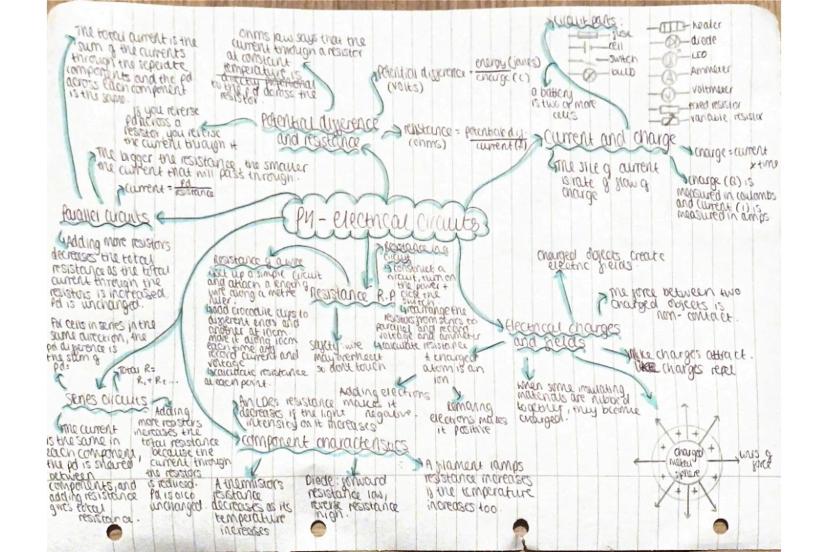 The total current is the
sum of the currents
through the seperate
components and the pd
across each component
is the same.
Ohms law says that the
current through a resistor
at constant
temperature is
directly
to the pd across the
resistor.
Potential difference = energy (joules)
(volts)
charge (C)
If you reverse
pd across a
resistor you reverse
the current through it
The bigger the resistance, the smaller
the current that will pass through.
current = pd
resistance
Potential difference
and resistance
resistance = potential dif.
(ohms)
current
Circuit parts:
fuse
cell
switch
bulb
a battery
is two or more
cells
heater
diode
LED
Ammeter
voltmeter
fixed resistor
variable resistor
Current and charge
The size of current
is rate of flow of
charge
charge = current
x time
charge (Q) is
measured in coulombs
and current (I) is
measured in amps
P4 - electrical circuits
Parallel circuits
Adding more resistors
decreases the total
resistance as the total
current through the
resistors is increased.
Pd is unchanged.
For cells in series in the
same direction, the
pd difference is
the sum of
pds
Total R =
R1 + R2 ...
Series circuits
The current
is the same in
each component,
the pd is shared
between
components, and
adding resistance
gives total
resistance.
Adding
more resistors
increases the
total resistance
because the
current through
the resistors
is reduced.
Pd is also
unchanged.
Resistance of a wire
set up a simple circuit
and attach a length of
wire along a metre
ruler.
add crocodile clips to
different ends and
another at 10cm
move it along 10cm
each time and
record current and
voltage
calculate resistance
at each point.
Resistance R.P
safety: wire
may overheat
so don't touch
Resistance in a
circuit
construct a
circuit, turn on
the power +
close the
switch
rearrange the
resistors from series to
parallel and record
voltage and ammeter
calculate resistance
a charged
atom is an
ion
Adding electrons
makes it
negative.
removing
electrons makes
it positive
Electrical charges
and fields
charged objects create
electric fields
The force between two
charged objects is
non-contact.
Unlike charges attract.
like charges repel
when some insulating
materials are rubbed
together, they become
charged.
charged
metal
sphere
lines of
force
An LDRs resistance
decreases if the light
intensity on it increases
Component characteristics
A thermistors
resistance
decreases as its
temperature
increases
Diode: forward
resistance low,
reverse resistance
high.
A filament lamps
resistance increases
if the temperature
increases too.